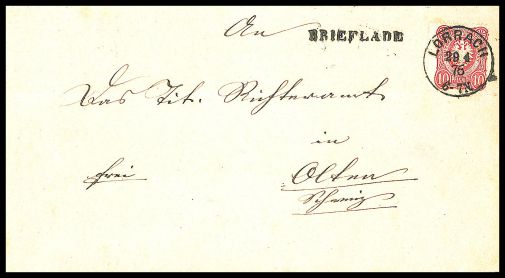 An
BRIEFLADE
LÖRRACH
29 4
76
6-7N.
10 10
Das Tit. Richteramt
in
frei
Olten
Schweiz